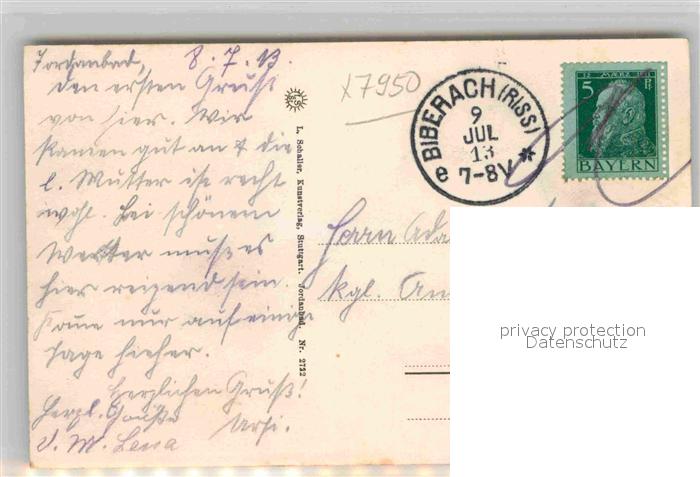 Jordanbad, 8.7.13.
den ersten Gruß
von hier. Wir
kamen gut an & die
l. Mutter ist recht
wohl. Bei schönem
Wetter muß es
hier reizend sein.
Komme nur auf einige
Tage hieher.
Herzlichen Gruß!
Herzl. Grüße
L. Schaller, Kunstverlag, Stuttgart. Jordanbad. Nr. 2732
x7950
BIBERACH (RISS)
9
JUL
13
7-8V
12 MÄRZ 1911
5 Pf
BAYERN
Herrn
kgl.
privacy protection
Datenschutz